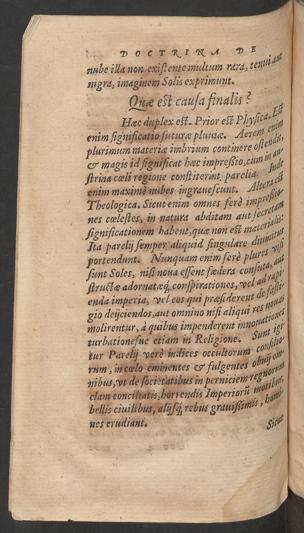 DOCTRINA DE
nube illa non existente multum rara, tenui aut
nigra, imaginem Solis exprimunt.
Quæ est causa finalis?
Hæc duplex est. Prior est Physica. Est
enim significatio futuræ pluviæ. Aerem enim
plurimum materiæ imbrium continere ostendit,
& magis id significat hæc impressio, cum in au-
strina cœli regione constiterint parelia. Inde
enim maximè nubes ingravescunt. Altera est
Theologica. Sicut enim omnes ferè impressio-
nes cœlestes, in natura abditam aut secretam
significationem habent, quæ non est materialis:
Ita parelij semper aliquid singulare divinitus
portendunt. Nunquam enim ferè plures visi
sunt Soles, nisi nova essent fædera consuta, aut
structæ adornatæq́; conspirationes, vel ad rapi-
enda imperia, vel eos qui præsiderent de fasti-
gio deijciendos, aut omnino nisi aliqui res novas
molirentur, à quibus impenderent innovationes
turbationesue etiam in Religione. Sunt igi-
tur Parelij verè indices occultorum consilio-
rum, in cœlo eminentes & fulgentes obvij om-
nibus, vt de societatibus in perniciem regnorum
clam conciliatis, horrendis Imperiorū motibus,
bellis civilibus, alijsq́; rebus gravissimis, homi-
nes erudiant.
Sicut